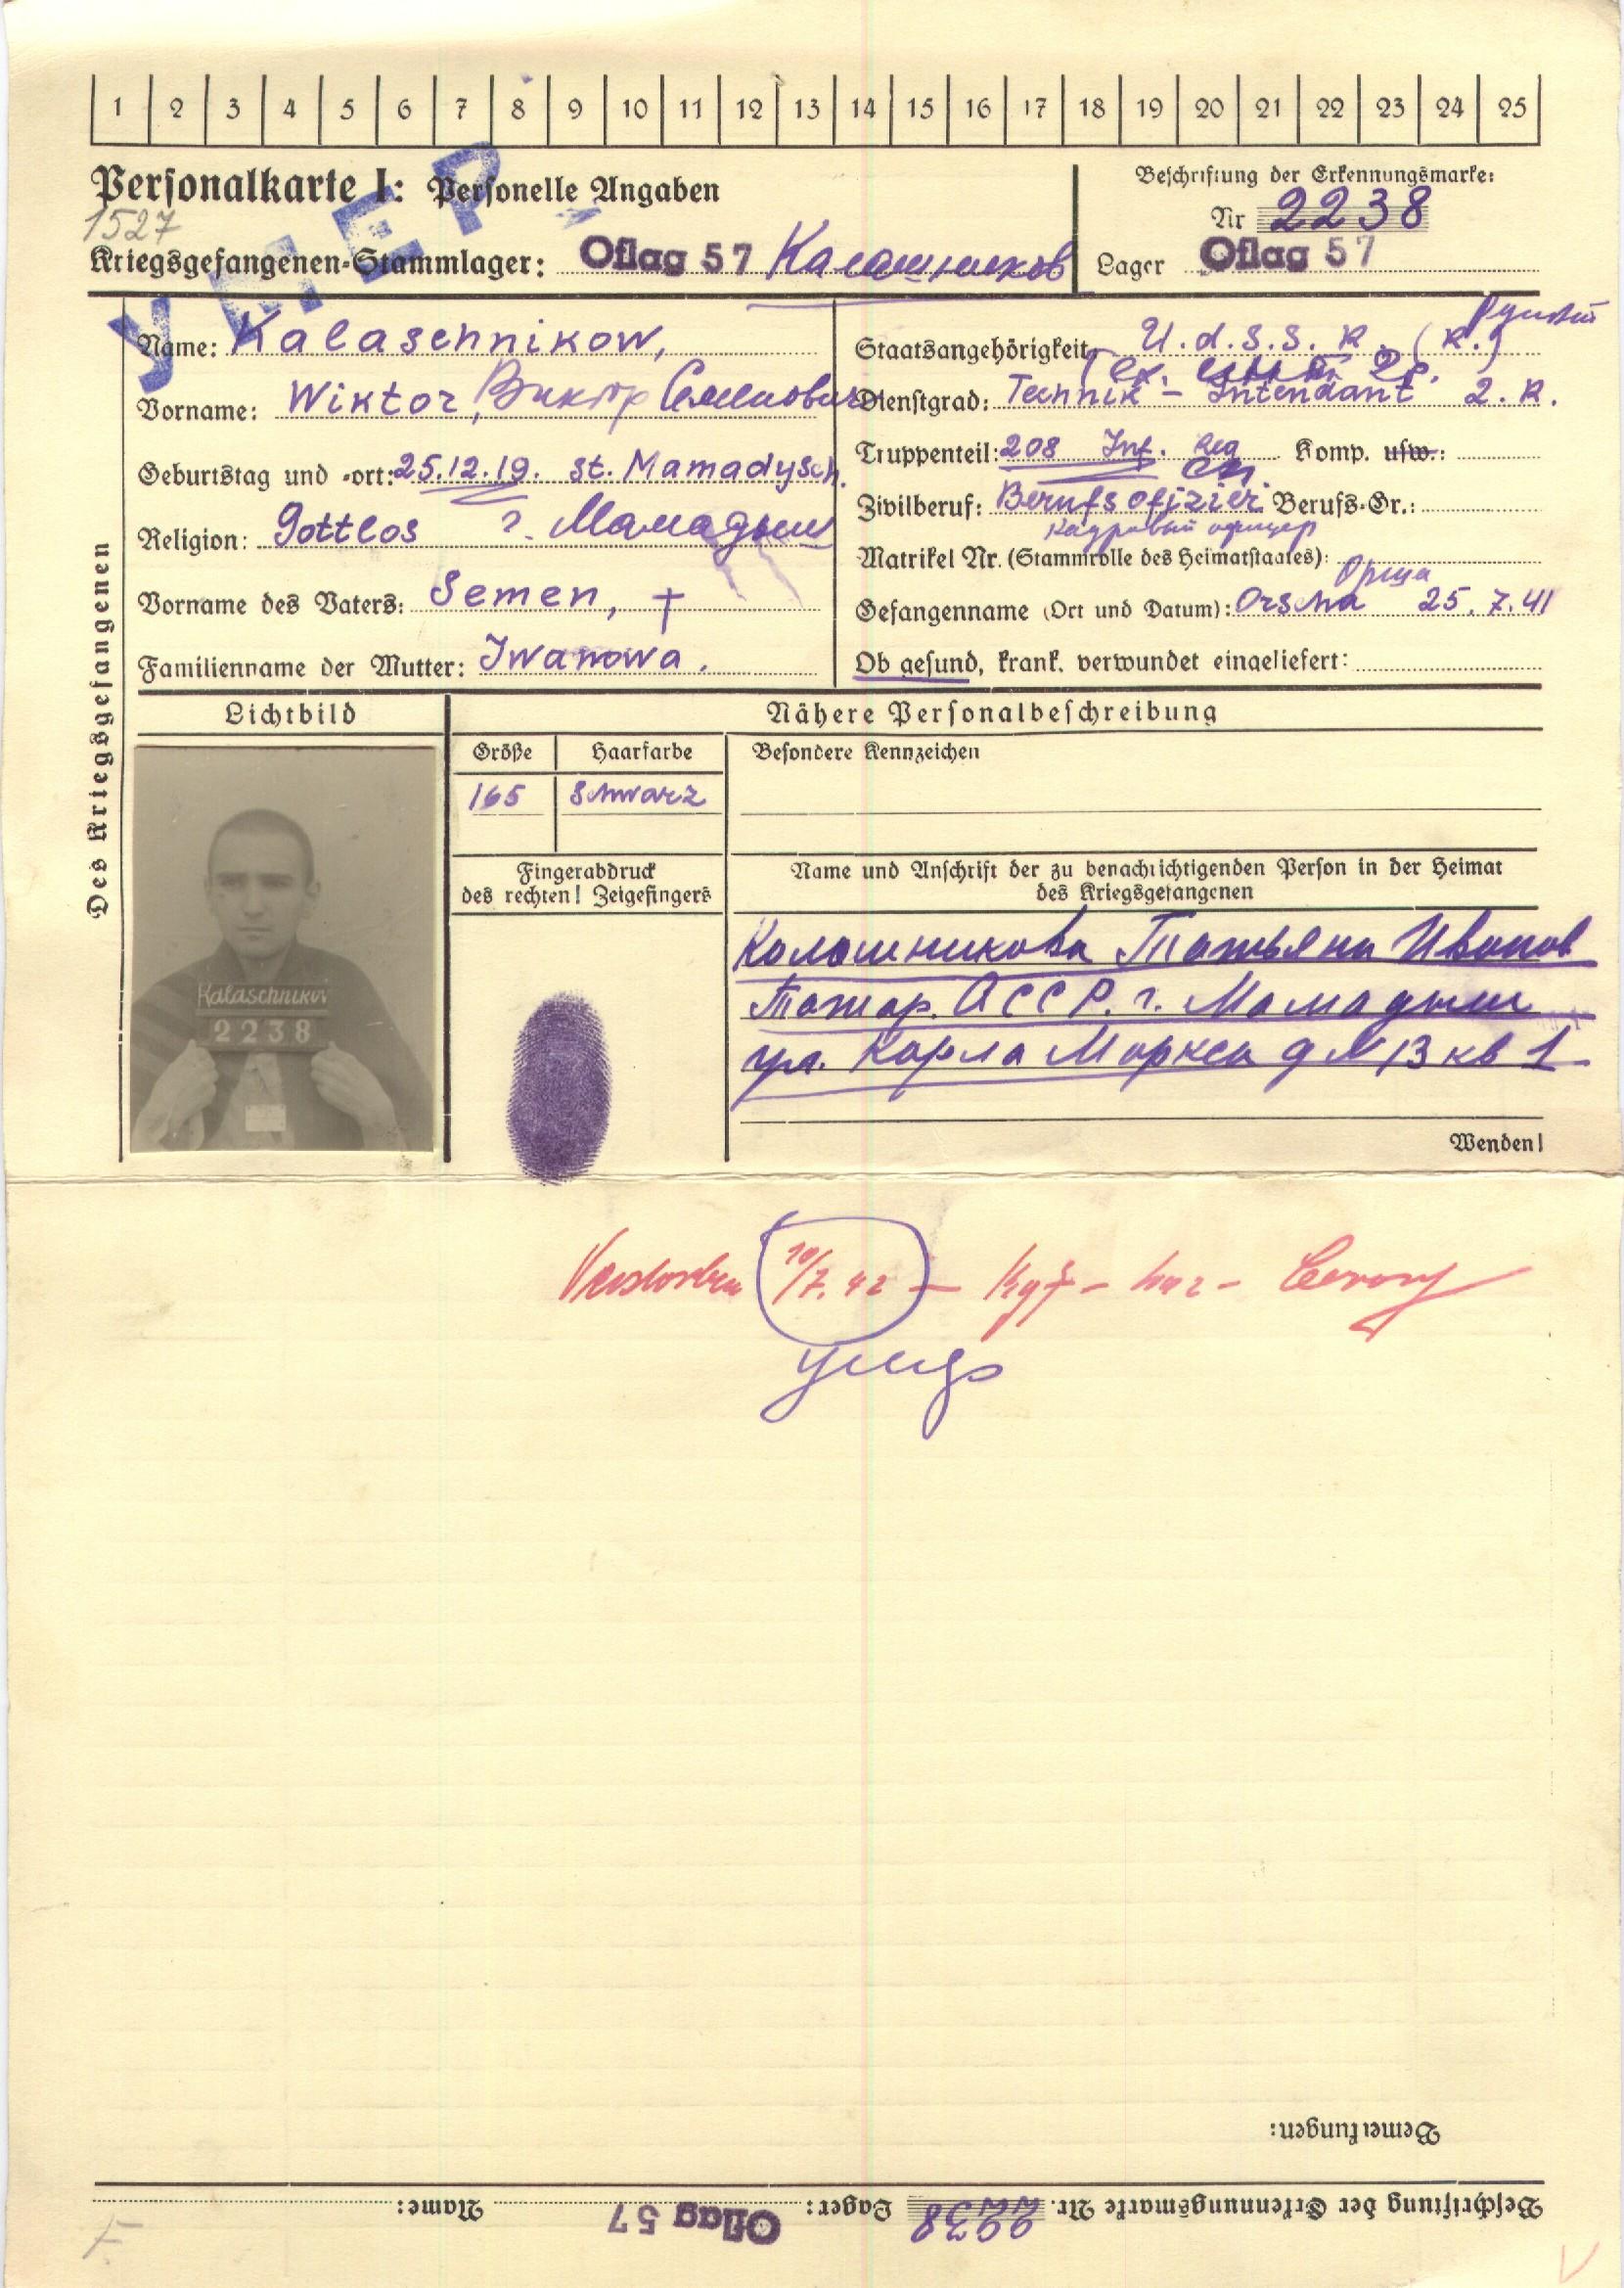 1 2 3 4 5 6 7 8 9 10 11 12 13 14 15 16 17 18 19 20 21 22 23 24 25
Personalkarte I: Personelle Angaben
УМЕР
1527
Kriegsgefangenen-Stammlager: Oflag 57 Калашников
Beschriftung der Erkennungsmarke:
Nr 2238
Lager Oflag 57
Des Kriegsgefangenen
Name: Kalaschnikow,
Vorname: Wiktor, Виктор Семенович
Geburtstag und -ort: 25.12.19. st. Mamadysch.
Religion: Gottlos г. Мамадыш
Vorname des Vaters: Semen, †
Familienname der Mutter: Iwanowa.
Русский
Staatsangehörigkeit U.d.S.S.R. (R.)
Dienstgrad: Technik - Intendant 2. R.
Truppenteil: 208 Inf. Reg Komp. usw.:
Zivilberuf: Berufsofizier. Berufs-Gr.:
кадровый офицер
Matrikel Nr. (Stammrolle des Heimatstaates):
Орша
Gefangenname (Ort und Datum): Orscha 25.7.41
Ob gesund, krank, verwundet eingeliefert:
Lichtbild
Nähere Personalbeschreibung
Größe Haarfarbe Besondere Kennzeichen
165 schwarz
Fingerabdruck
des rechten! Zeigefingers
Name und Anschrift der zu benachrichtigenden Person in der Heimat
des Kriegsgefangenen
Kalaschnikow
2238
Калашникова Татьяна Иванов
Татар. АССР. г. Мамадыш
ул. Карла Маркса д N 13 кв 1
Wenden!
Verstorben 10/7.42
умер
Bemerkungen:
Beschriftung der Erkennungsmarke Nr. 2238 Lager: Oflag 57 Name: